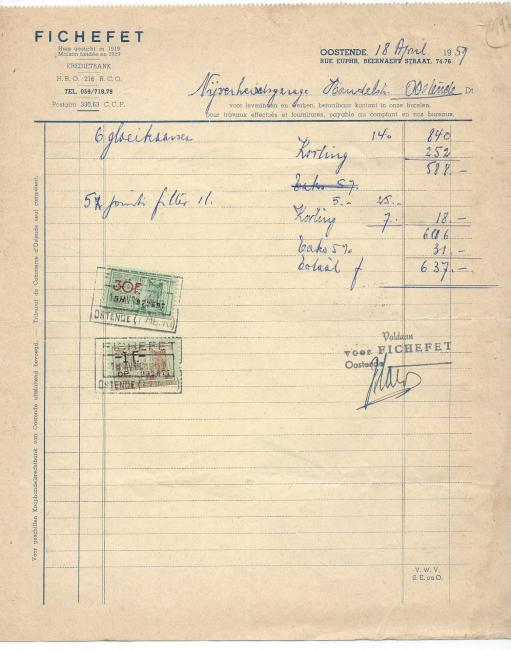 FICHEFET
Huis gesticht in 1919
Maison fondée en 1919
KREDIETBANK
H.R.O. 216 R.C.O.
TEL. 059/718.78
Postgiro 330.63 C.C.P.
OOSTENDE, 18 April 1959
RUE EUPHR. BEERNAERT STRAAT, 74-76
Nijverheidsgarage Handelstr. Oostende Dt
voor leveringen en werken, betaalbaar kontant in onze burelen.
pour travaux effectués et fournitures, payable au comptant en nos bureaux.
6 gloeikaarsen 140 840
Korting 252
588.-
Taks 5%
5 joints filter 11. 5.- 25.-
Korting 7.- 18.-
606
Taks 5% 31.-
Totaal f 637.-
30F
OSTENDE
FICHEFET
-1F-
OSTENDE
Voldaan
voor FICHEFET
Oostende
Voor geschillen Koophandelsrechtbank van Oostende uitsluitend bevoegd. — Tribunal de Commerce d'Ostende seul compétent.
V.W.V.
S.E. ou O.